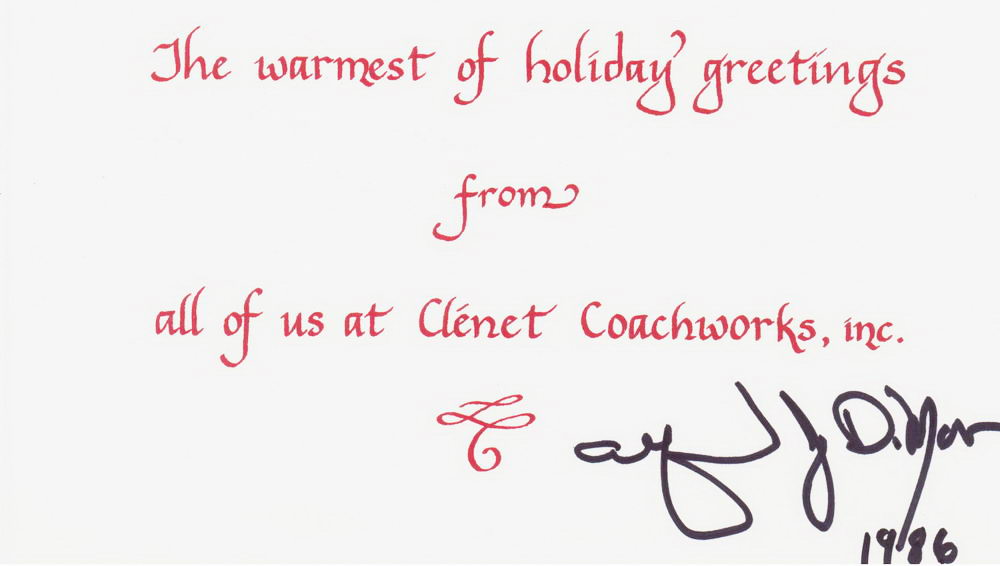 The warmest of holiday greetings
from
all of us at Clénet Coachworks, inc.
1986